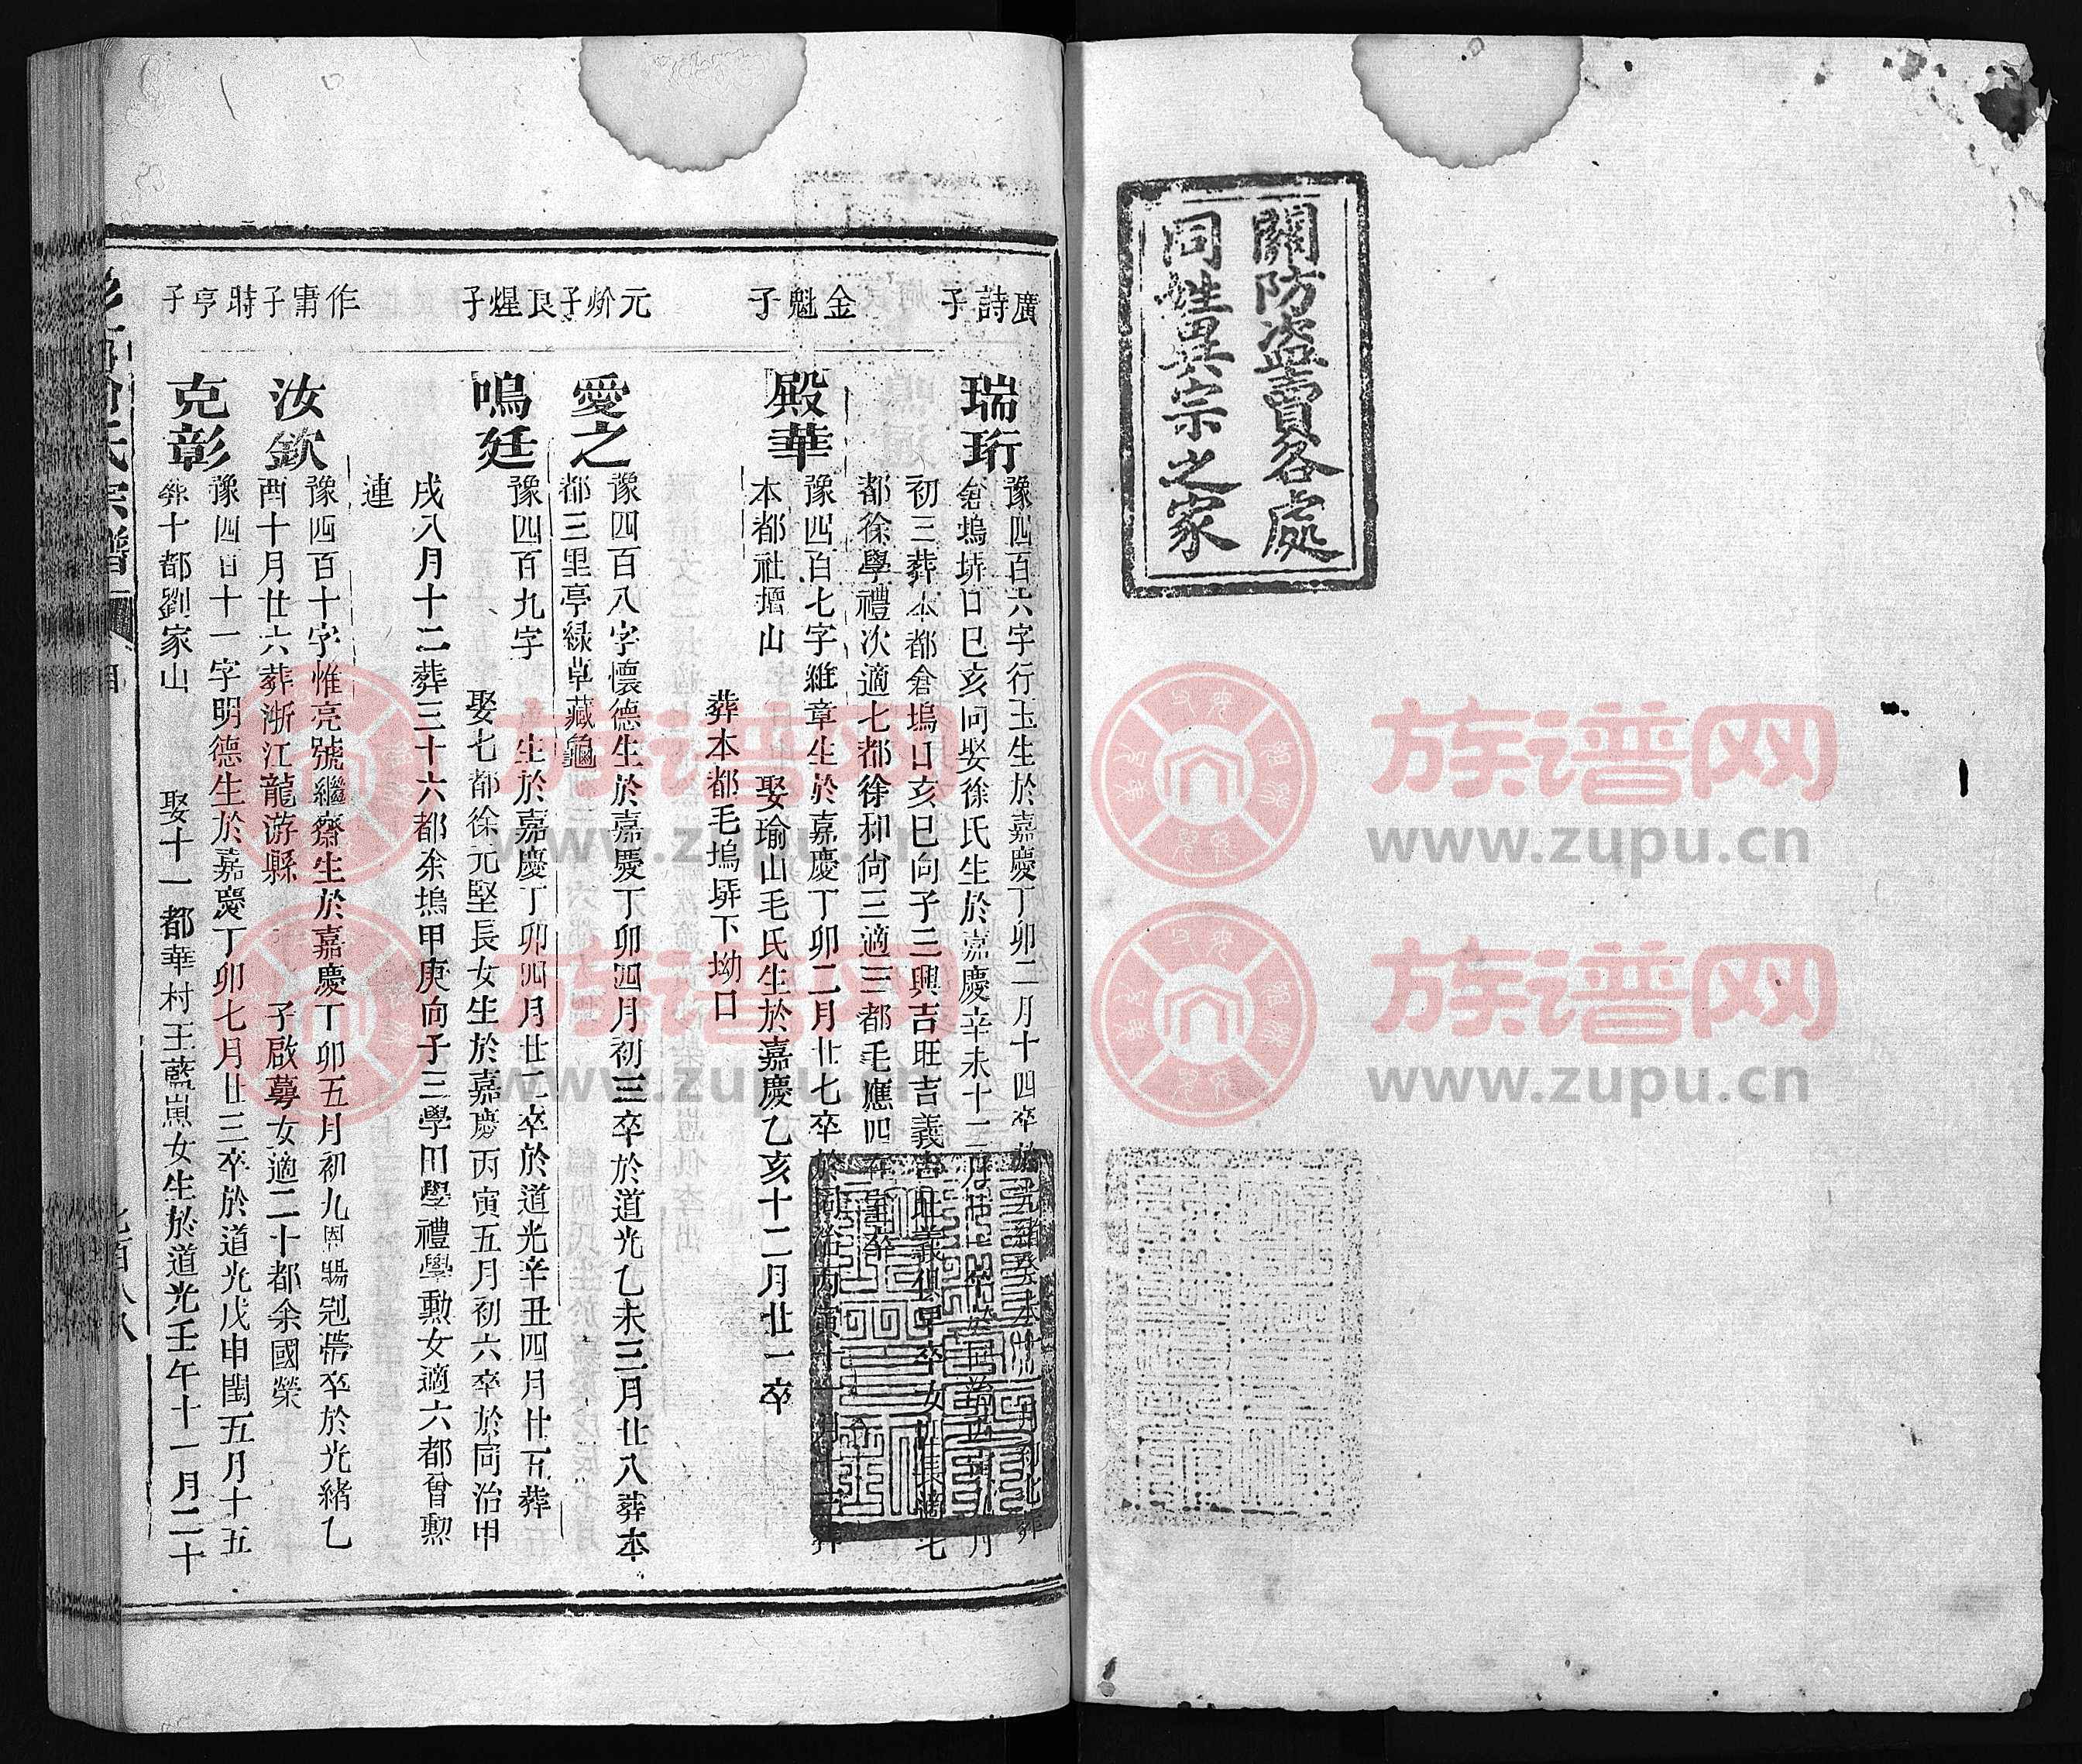 關防盜賣各處
同姓異宗之家
廣詩子
瑞珩
豫四百六字行玉生於嘉慶丁卯二月十四卒於光緒癸未十
倉塢塝口巳亥向娶徐氏生於嘉慶辛未十二月
初三葬本都倉塢口亥巳向子三興吉旺吉義吉旺義俱早卒女
都徐學禮次適七都徐和尙三適三都毛應四
金魁子
殿華
豫四百七字維章生於嘉慶丁卯二月廿七卒於同治丙寅十一月十三葬
本都社壇山 娶瑜山毛氏生於嘉慶乙亥十二月廿一卒
葬本都毛塢塝下坳口
元炌子
愛之
豫四百八字懷德生於嘉慶丁卯四月初三卒於道光乙未三月廿八葬本
都三里亭緑草藏龜
良煋子
鳴廷
豫四百九字 生於嘉慶丁卯四月廿二卒於道光辛丑四月廿五葬
娶七都徐元堅長女生於嘉慶丙寅五月初六卒於同治甲
戌八月十二葬三十六都余塢甲庚向子三學田學禮學勳女適六都曾勲
連
作霱子
汝欽
豫四百十字惟亮號繼齋生於嘉慶丁卯五月初九恩賜冠帶卒於光緒乙
酉十月廿六葬浙江龍游縣 子啟蕚女適二十都余國榮
時亨子
克彰
豫四百十一字明德生於嘉慶丁卯七月廿三卒於道光戊申閏五月十五
葬十都劉家山 娶十一都華村王藍嵩女生於道光壬午十一月二十
氏宗譜
族谱网
www.zupu.cn
族谱网
www.zupu.cn
族谱网
www.zupu.cn
族谱网
www.zupu.cn